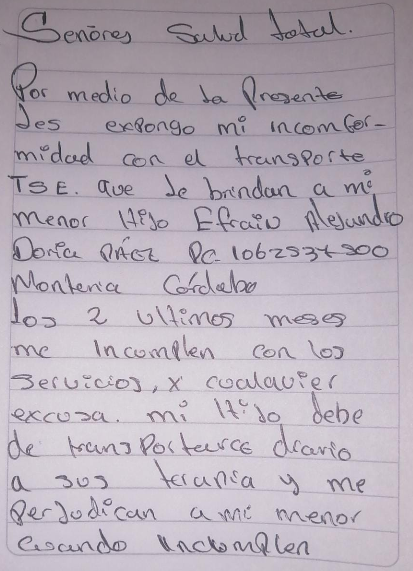 Señores Salud total.
Por medio de la Presente
les expongo mi incomfor-
midad con el transporte
TSE. que le brindan a mi
menor Hijo Efrain Alejandro
Doria PÁEZ RC 1062537900
Monteria Córdoba
los 2 ultimos meses
me Incomplen con los
servicios, x cualquier
excusa. mi Hijo debe
de transPortarce diario
a sus terapia y me
Perjudican a mi menor
cuando incumplen